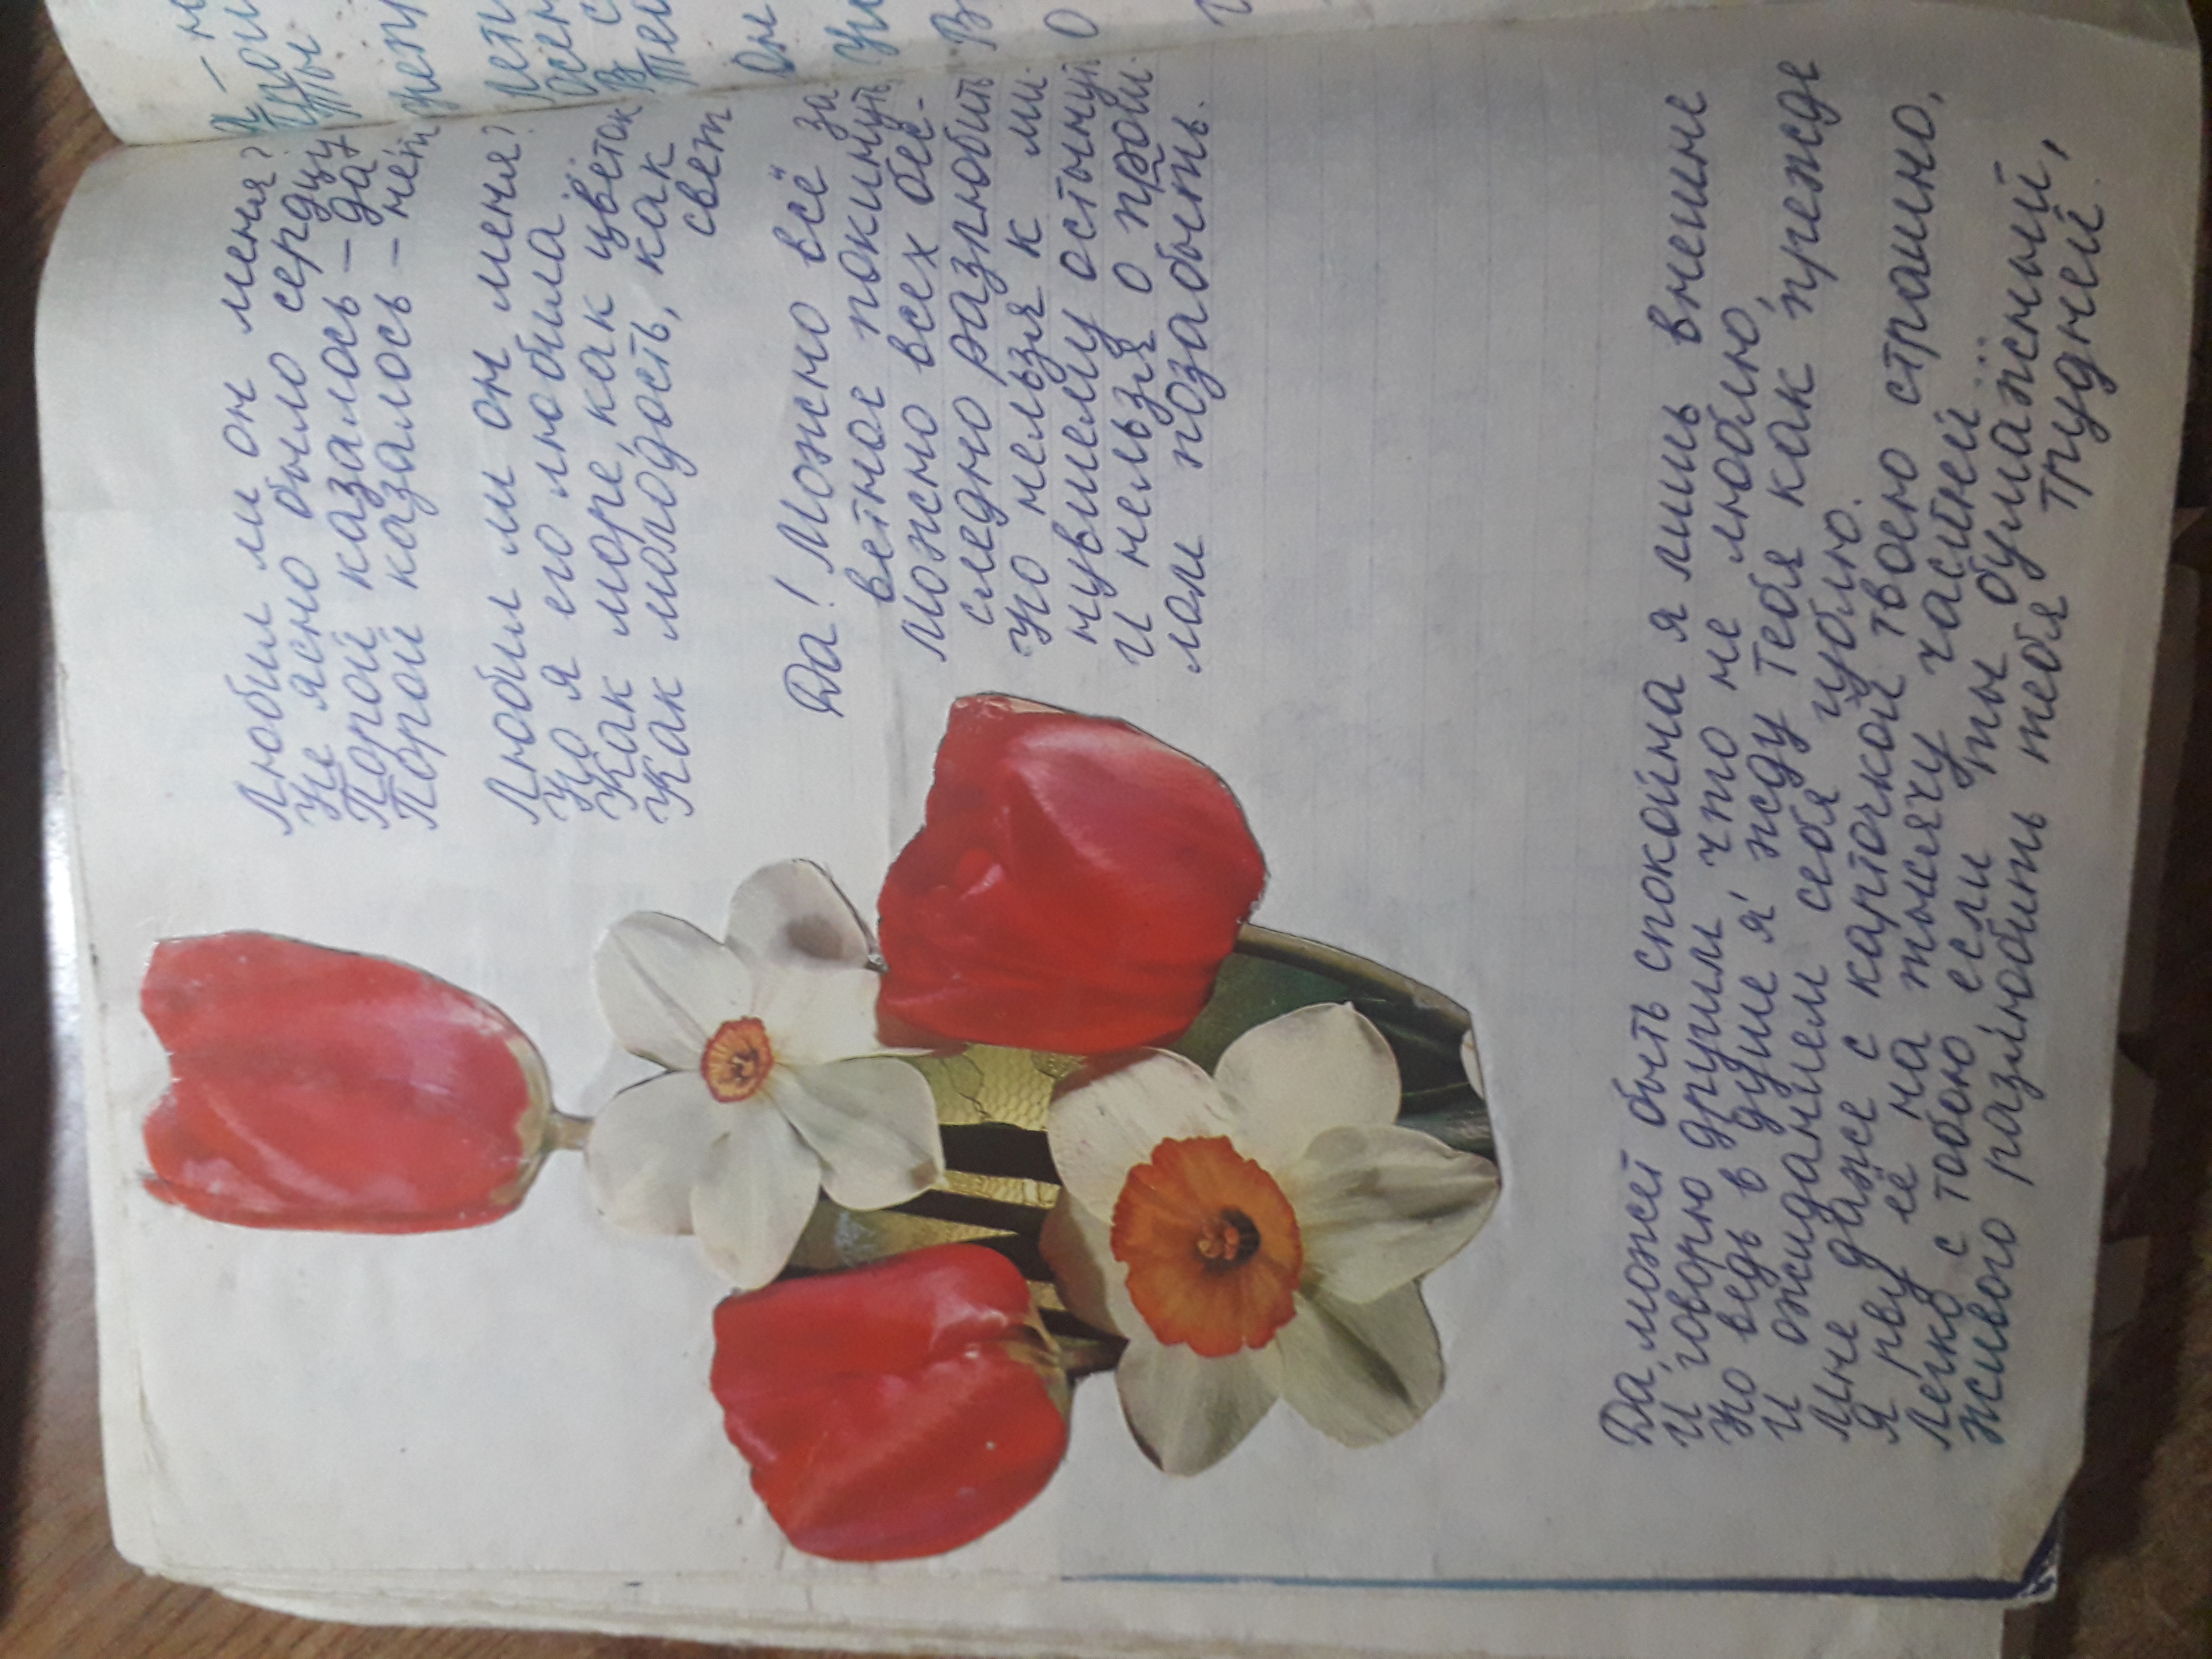 Любил ли он меня?
Не ясно было сердцу
Порой казалось – да,
Порой казалось – нет
Любил ли он меня?
Но я его любила
Как море, как цветок
Как молодость, как
свет
Да! Можно всё за
ветное покинуть
Можно всех бес-
следно разлюбить
Но нельзя к ми
нувшему остынуть
И нельзя о прош
лом позабыть.
Да, может быть спокойна я лишь внешне
И говорю другим что не люблю,
Но ведь в душе я жду тебя как прежде
И ожиданием себя гублю.
Мне даже с карточкой твоею страшно,
Я рву её на тысячу частей...
Легко с тобою если ты бумажный,
живого разлюбить тебя трудней.